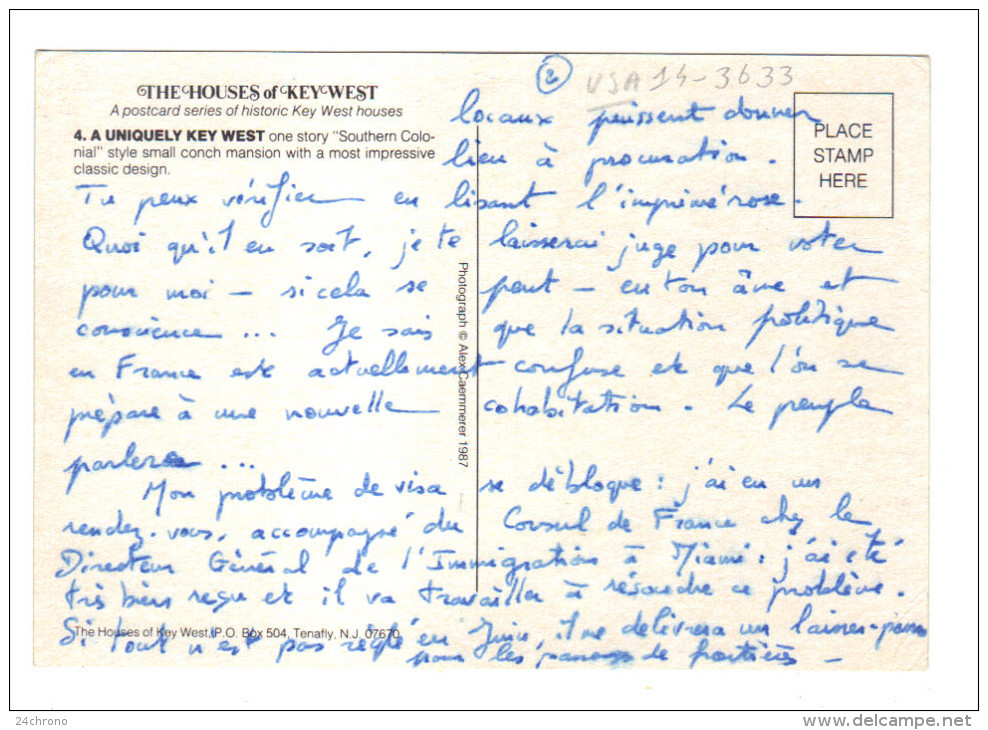 THE HOUSES of KEY WEST
A postcard series of historic Key West houses
4. A UNIQUELY KEY WEST one story "Southern Colo-
nial" style small conch mansion with a most impressive
classic design.
2
USA 14-3633
PLACE
STAMP
HERE
locaux puissent donner
lieu à procuration.
Tu peux vérifier en lisant l'imprimé rose.
Quoi qu'il en soit, je te laisserai juge pour voter
pour moi - si cela se peut - en ton âme et
conscience... Je sais que la situation politique
en France est actuellement confuse et que l'on se
prépare à une nouvelle cohabitation. Le peuple
parlera...
Mon problème de visa se débloque : j'ai eu un
rendez-vous, accompagné du Consul de France chez le
Directeur Général de l'Immigration à Miami : j'ai été
très bien reçu et il va travailler à résoudre ce problème.
Si tout n'est pas réglé en Juin, il me délivrera un laisser-passer
pour les passages de frontières -
Photograph © Alex Caemmerer 1987
The Houses of Key West, P.O. Box 504, Tenafly, N.J. 07670
24chrono
www.delcampe.net